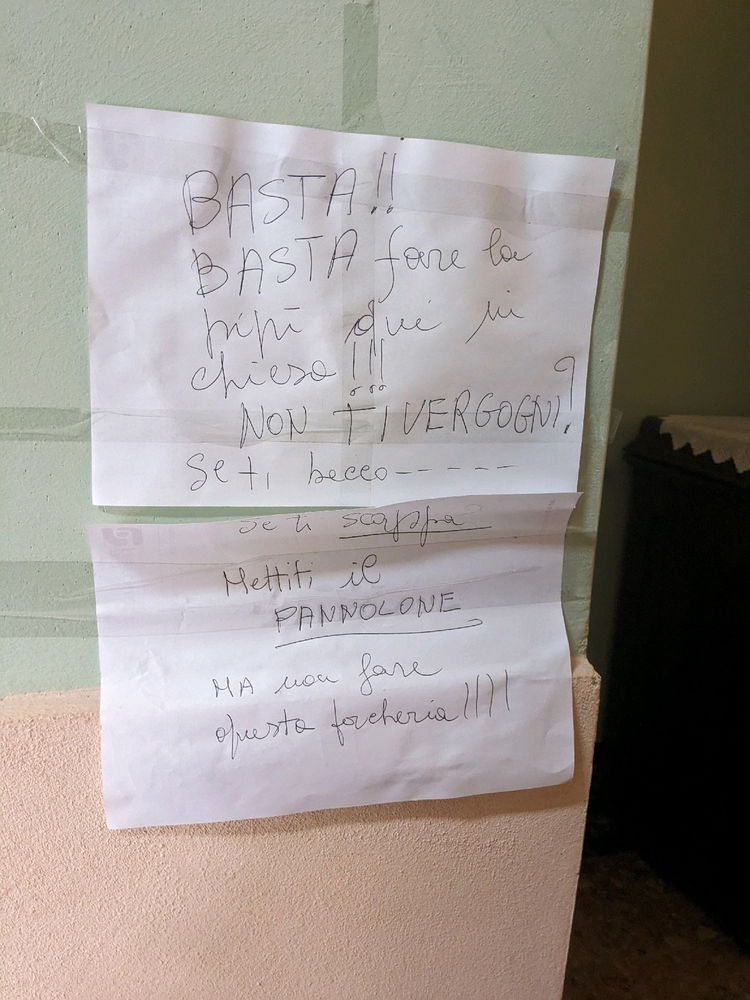 BASTA!!
BASTA fare la
pipì qui in
chiesa!!!
NON TI VERGOGNI?
Se ti becco-----
Se ti scappa
Mettiti il
PANNOLONE
MA non fare
questa porcheria!!!!